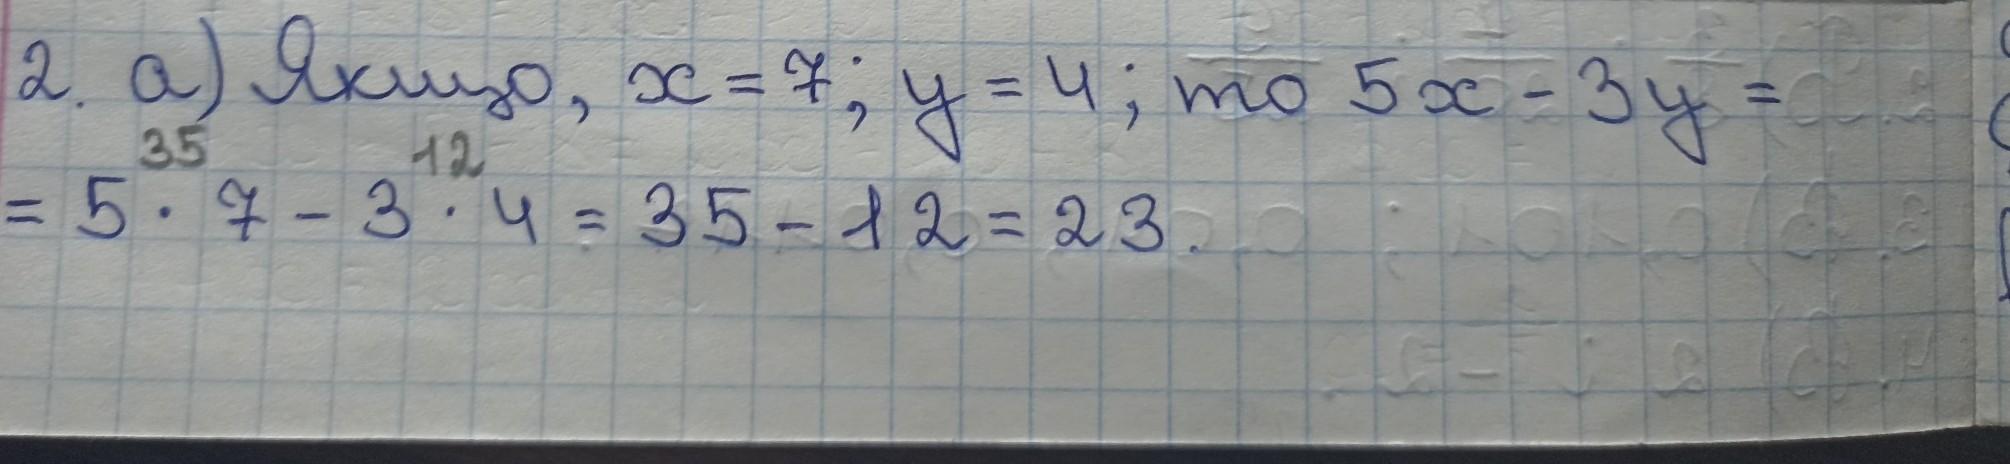 2. а) Якщо, x = 7; y = 4; то 5x - 3y =
35 12
= 5 · 7 - 3 · 4 = 35 - 12 = 23.